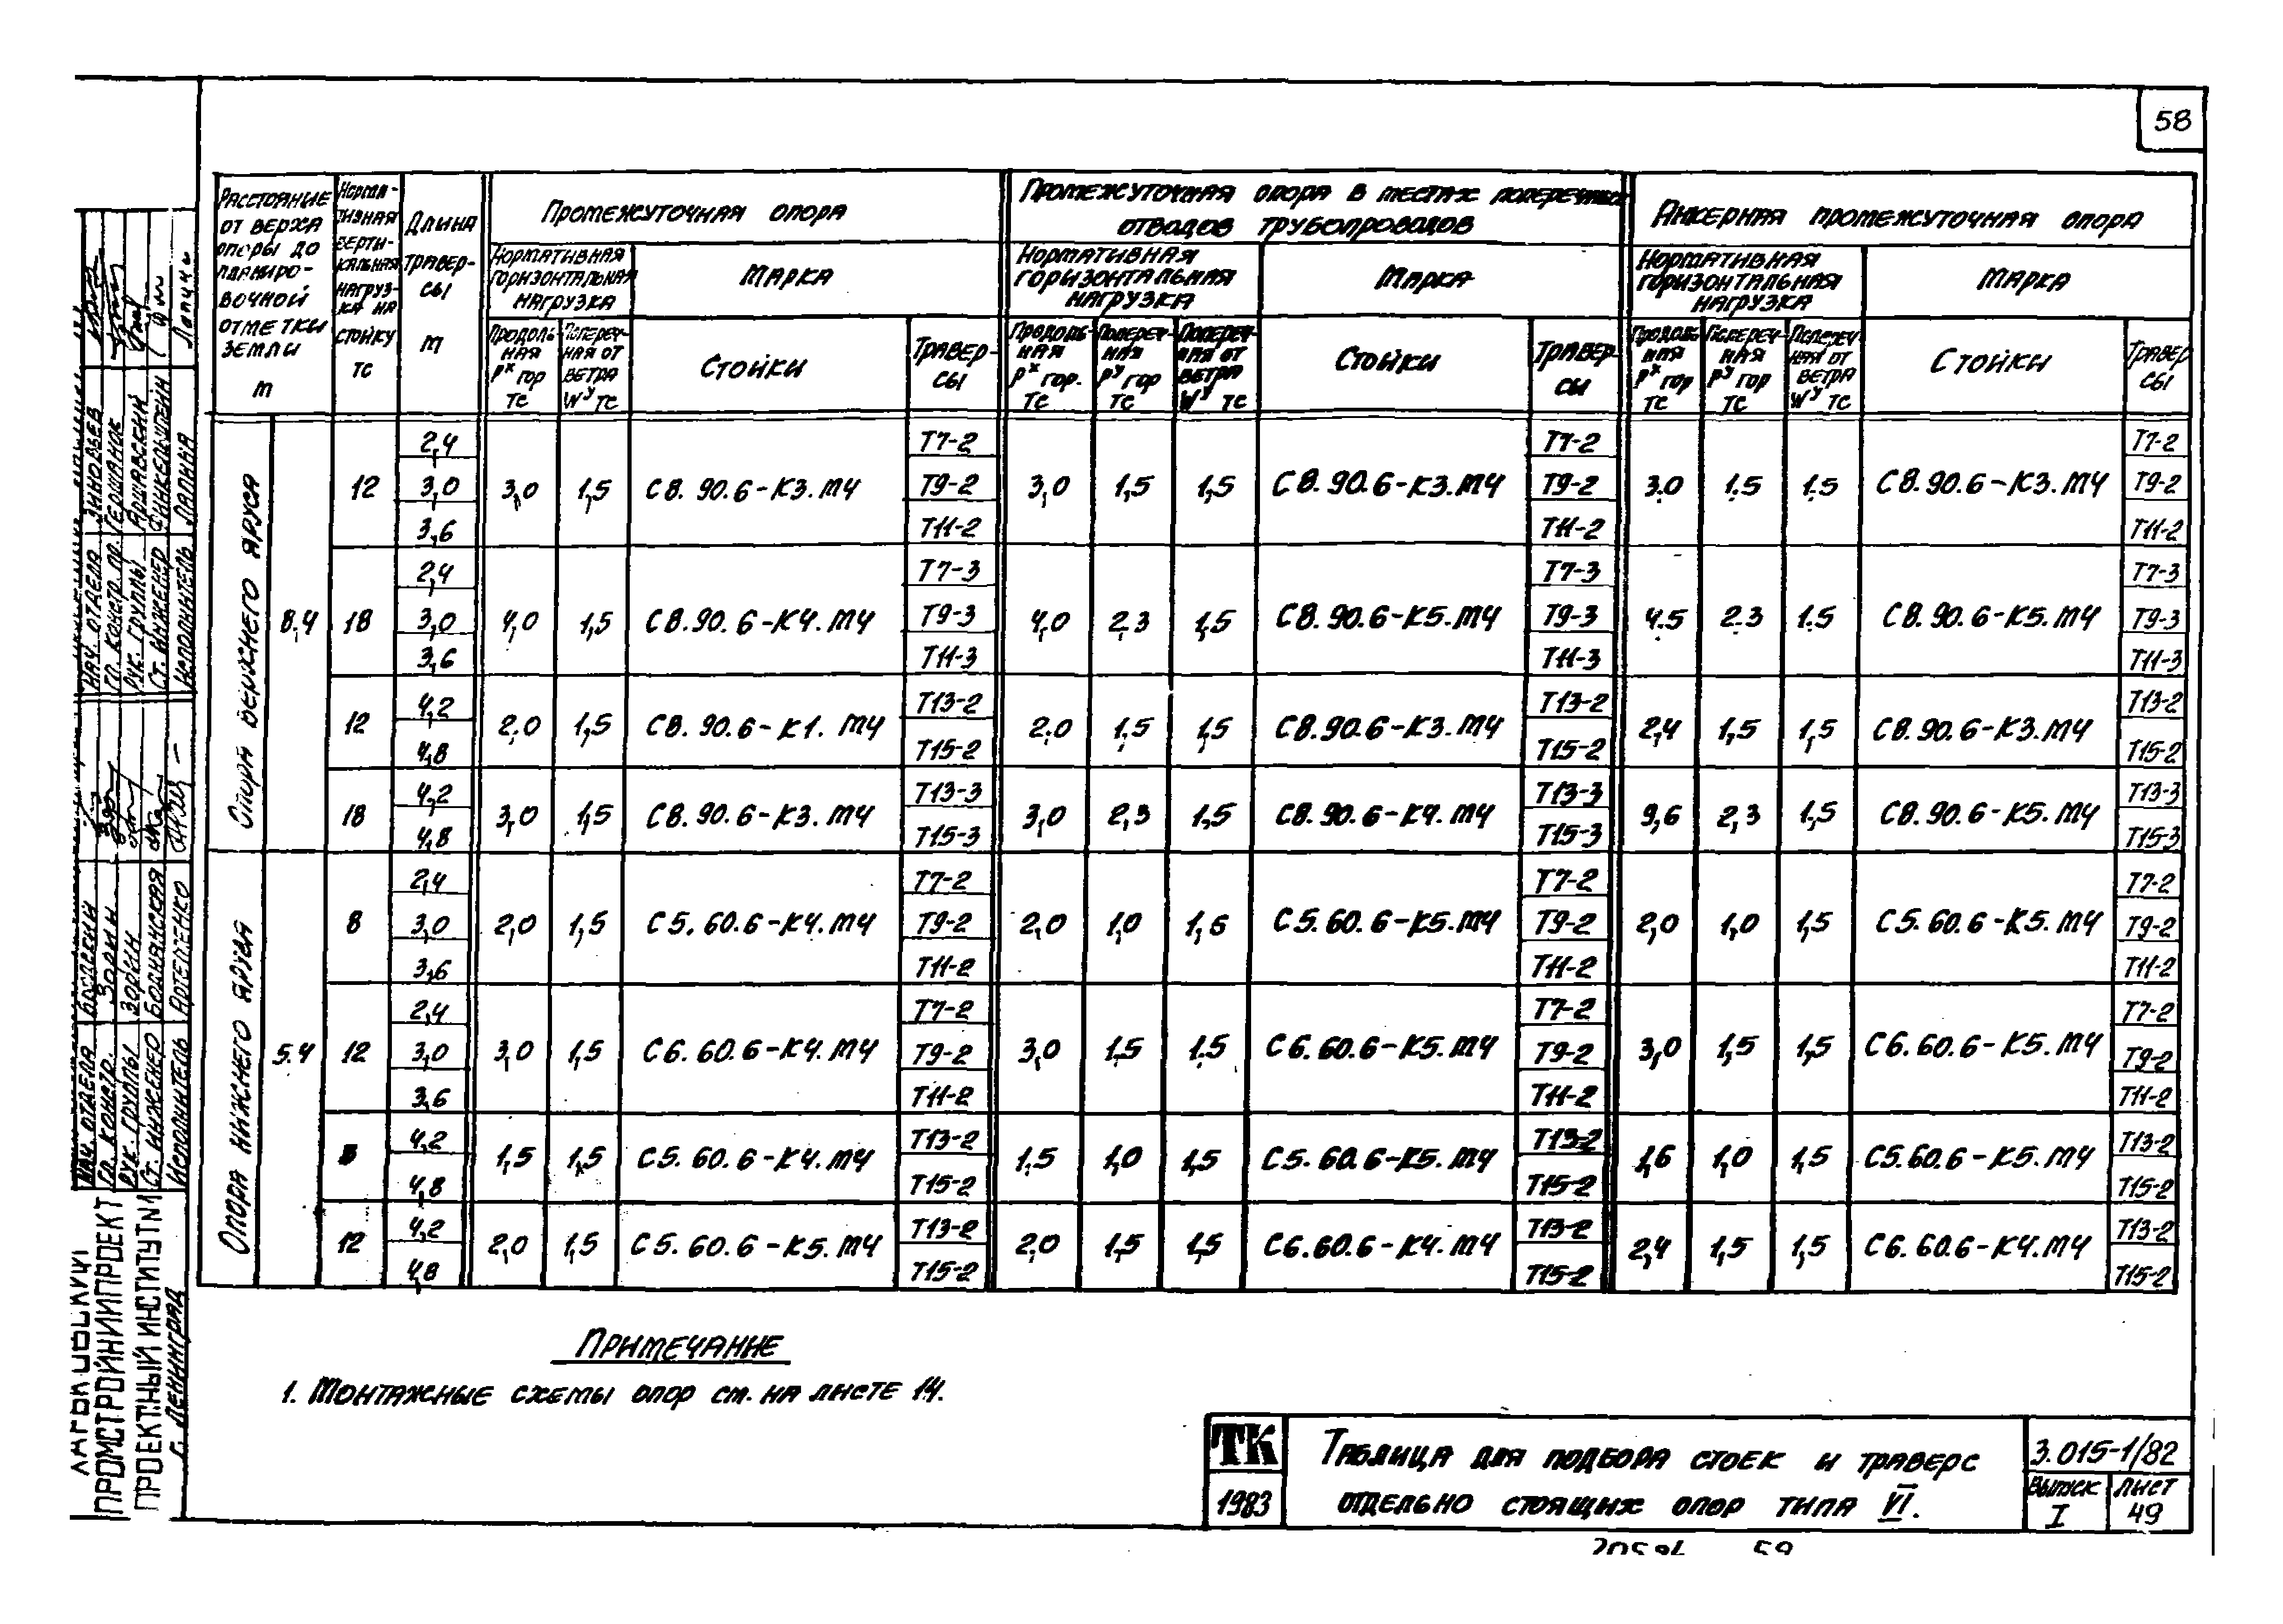 58
Расстояние от верха опоры до планиро-вочной отметки земли м
Норма-тивная верти-кальная нагруз-ка на стойку тс
Длина травер-сы м
Промежуточная опора
Промежуточная опора в местах поперечных отводов трубопроводов
Анкерная промежуточная опора
Нормативная горизонтальная нагрузка
Марка
Нормативная горизонтальная нагрузка
Марка
Нормативная горизонтальная нагрузка
Марка
Продоль-ная Рх гор тс
Попереч-ная от ветра Wу тс
Стойки
Травер-сы
Продоль-ная Рх гор. тс
Попереч-ная Ру гор тс
Попереч-ная от ветра Wу тс
Стойки
Травер сы
Продоль ная Рх гор тс
Попереч-ная Ру гор тс
Попереч ная от ветра Wу тс
Стойки
Травер сы
Опора верхнего яруса
8,4
12 2,4 3,0 3,6 3,0 1,5 С8.90.6-К3.М4 Т7-2 Т9-2 Т11-2 3,0 1,5 1,5 С8.90.6-К3.М4 Т7-2 Т9-2 Т11-2 3.0 1.5 1.5 С8.90.6-К3.М4 Т7-2 Т9-2 Т11-2
18 2,4 3,0 3,6 4,0 1,5 С8.90.6-К4.М4 Т7-3 Т9-3 Т11-3 4,0 2,3 1,5 С8.90.6-К5.М4 Т7-3 Т9-3 Т11-3 4.5 2.3 1.5 С8.90.6-К5.М4 Т7-3 Т9-3 Т11-3
12 4,2 4,8 2,0 1,5 С8.90.6-К1.М4 Т13-2 Т15-2 2,0 1,5 1,5 С8.90.6-К3.М4 Т13-2 Т15-2 2,4 1,5 1,5 С8.90.6-К3.М4 Т13-2 Т15-2
18 4,2 4,8 3,0 1,5 С8.90.6-К3.М4 Т13-3 Т15-3 3,0 2,3 1,5 С8.90.6-К4.М4 Т13-3 Т15-3 9,6 2,3 1,5 С8.90.6-К5.М4 Т13-3 Т15-3
Опора нижнего яруса
5.4
8 2,4 3,0 3,6 2,0 1,5 С5.60.6-К4.М4 Т7-2 Т9-2 Т11-2 2,0 1,0 1,5 С5.60.6-К5.М4 Т7-2 Т9-2 Т11-2 2,0 1,0 1,5 С5.60.6-К5.М4 Т7-2 Т9-2 Т11-2
12 2,4 3,0 3,6 3,0 1,5 С6.60.6-К4.М4 Т7-2 Т9-2 Т11-2 3,0 1,5 1.5 С6.60.6-К5.М4 Т7-2 Т9-2 Т11-2 3,0 1,5 1,5 С6.60.6-К5.М4 Т7-2 Т9-2 Т11-2
4,2 4,8 1,5 1,5 С5.60.6-К4.М4 Т13-2 Т15-2 1,5 1,0 1,5 С5.60.6-К5.М4 Т13-2 Т15-2 1,6 1,0 1,5 С5.60.6-К5.М4 Т13-2 Т15-2
12 4,2 4,8 2,0 1,5 С5.60.6-К5.М4 Т13-2 Т15-2 2,0 1,5 1,5 С6.60.6-К4.М4 Т13-2 Т15-2 2,4 1,5 1,5 С6.60.6-К4.М4 Т13-2 Т15-2
Примечание
1. Монтажные схемы опор см. на листе 14.
ТК
1983
Таблица для подбора стоек и траверс
отдельно стоящих опор типа VI.
3.015-1/82
Выпуск I
Лист 49
Нач. отдела Зиновьев
Гл. констр. пр. Гершанок
Рук. группы Аршавский
Ст. инженер Финкельштейн
Исполнитель Лапина
Нач. отдела Бродский
Гл. констр. Зорин
Рук. группы Зорин
Ст. инженер Боднянская
Исполнитель Артеменко
Харьковский
ПРОМСТРОЙНИИПРОЕКТ
ПРОЕКТНЫЙ ИНСТИТУТ №1
г. Ленинград
59